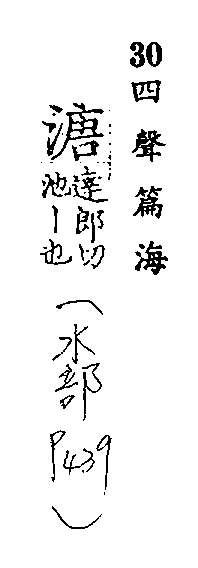 30四聲篇海
溏達郎切
池丨也
（水部
P439）